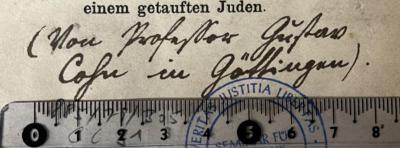 einem getauften Juden.
(Von Professor Gustav
Cohn in Göttingen).
VERITAS IUSTITIA LIBERTAS
SEMINAR FÜR
0 1 2 3 4 5 6 7 8